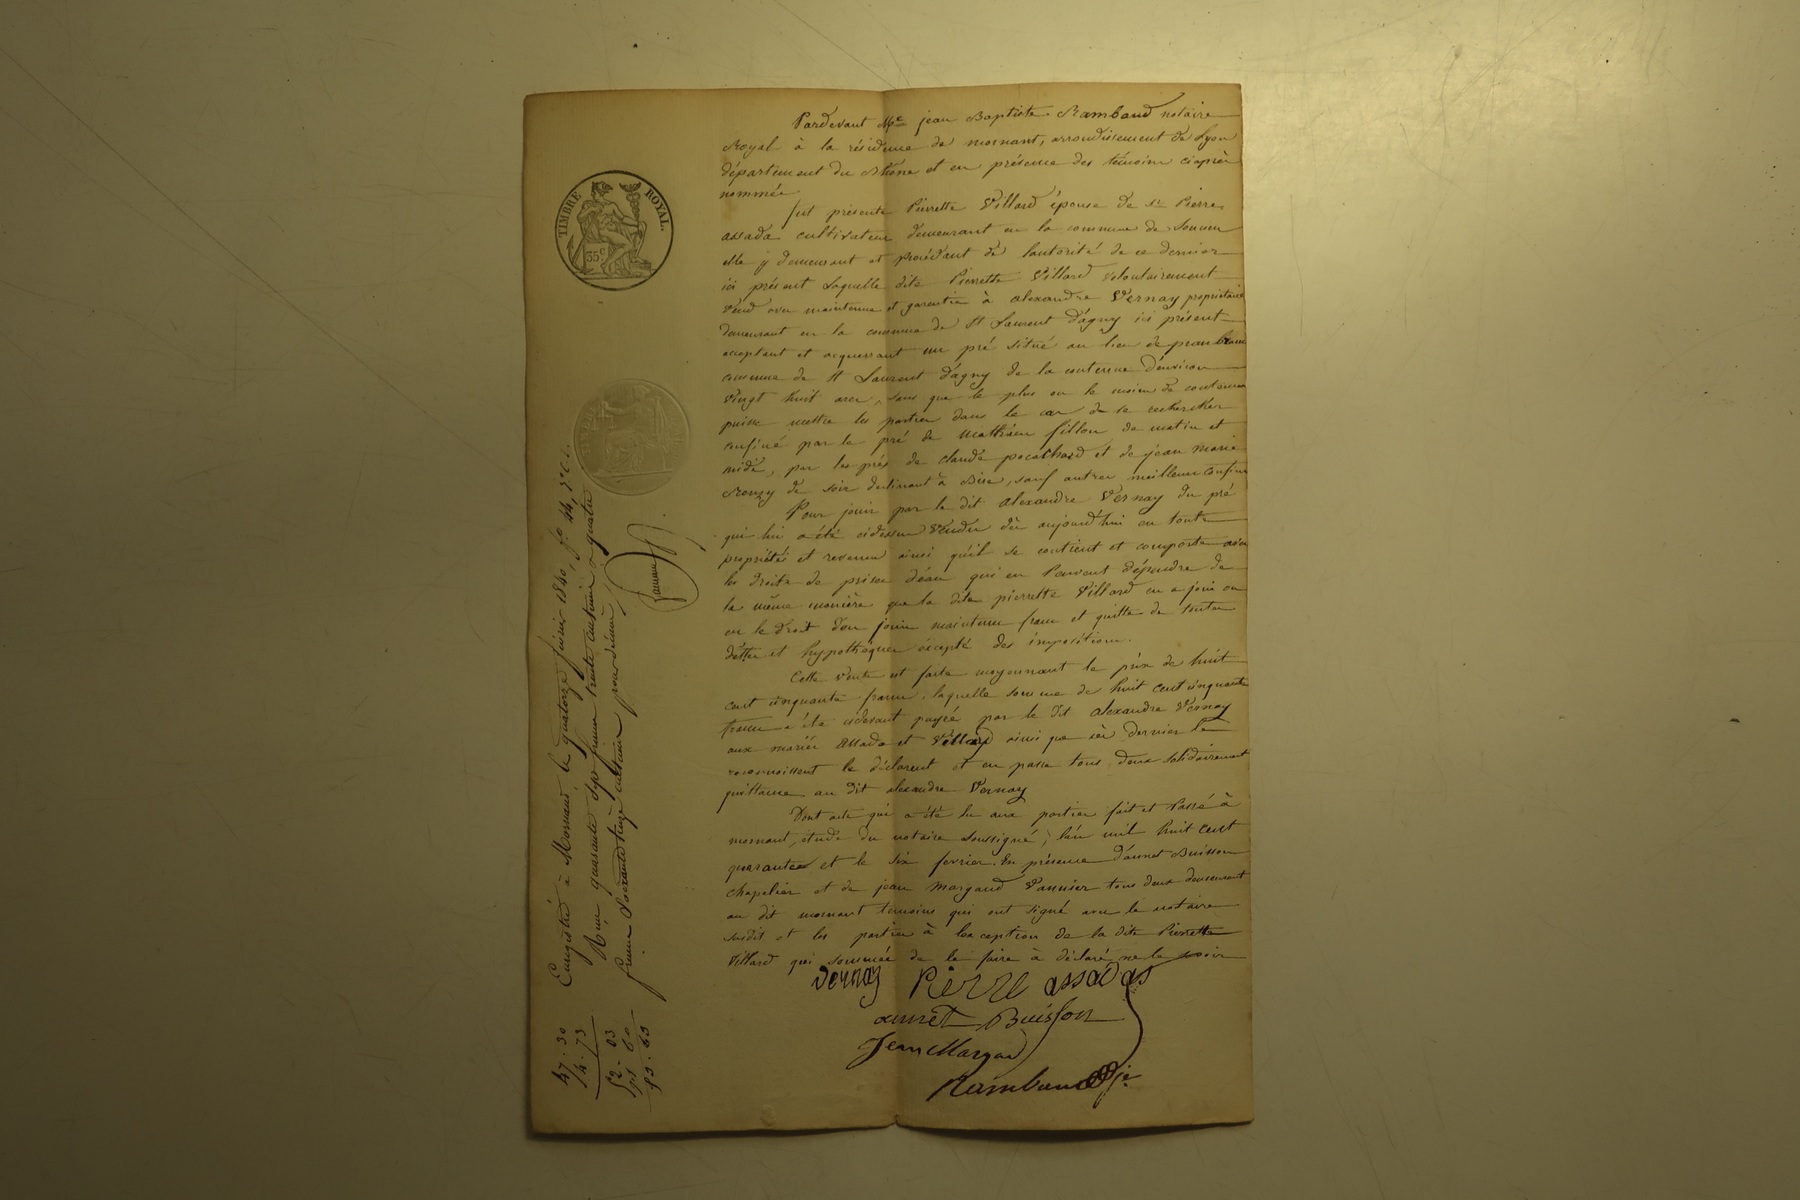 Pardevant Me jean Baptiste Rambaud notaire
Royal à la résidence de mornant, arrondissement de Lyon
département du Rhône et en présence des témoins ciaprès
nommés.
fut présente Pierrette Villard épouse de sr Pierre
assada cultivateur demeurant en la commune de
elle y demeurant et procédant de l'autorité de ce dernier
ici présent Laquelle dite Pierrette Villard volontairement
Vend avec maintenue et garantie à alexandre Vernay propriétaire
demeurant en la commune de St Laurent d'agny ici présent
acceptant et acquerrant un pré situé au lieu de
commune de St Laurent d'agny de la contenue d'environ
Vingt huit ares, sans que le plus ou le moins de contenue
puisse mettre les parties dans le cas de se rechercher
confiné par le pré de Mathieu fillon de matin et
midi, par les prés de claude pocachard et de jean marie
Rouzy de soir declinant à Bise, sauf autres meilleurs confins
Pour jouir par le dit alexandre Vernay du pré
qui lui a été cidessus Vendu dès aujourd'hui en toute
propriétés et revenus ainsi qu'il se contient et comporte avec
les droits de prises d'eau qui en Peuvent dépendre de
la même manière que la dite pierrette Villard en a joui ou
eu le droit d'en jouir maintenu franc et quitte de toutes
dettes et hypothèques éxcepté des impositions.
Cette vente est faite moyennant le prix de huit
cent cinquante francs, laquelle somme de huit cent cinquante
francs a été cidevant payée par le dit alexandre Vernay
aux mariés Assada et Villard ainsi que cès derniers le
reconnoissent le déclarent et en passe tous deux solidairement
quittance au dit alexandre Vernay
Dont acte qui a été lu aux parties fait et Passé à
mornant, étude du notaire soussigné, l'an mil huit cent
quarante et le six fevrier. En présence d'annet Buisson
chapelier et de jean Margaud Vannier tous deux demeurant
au dit mornant temoins qui ont signé avec le notaire
susdit et les parties à l'exception de la dite Pierrette
Villard qui sommée de le faire à déclaré ne le savoir
Vernay Pierre assadas
annet Buisson
Jean Margaud
Rambaud
TIMBRE ROYAL
35c
Enregistré à Mornant le quatorze février 1840, fo 44,
Reçu quarante sept francs trente centimes
francs soixante treize centimes pour décime
47.30
4.73
52.03